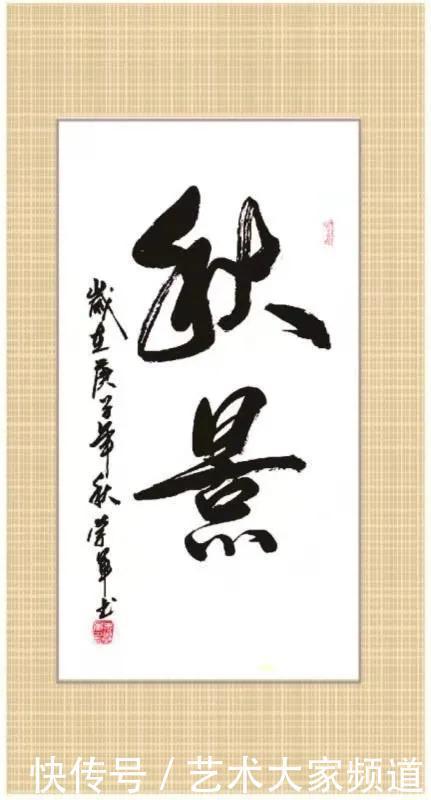 秋景
歲在庚子年秋荣军书
快传号/艺术大家频道